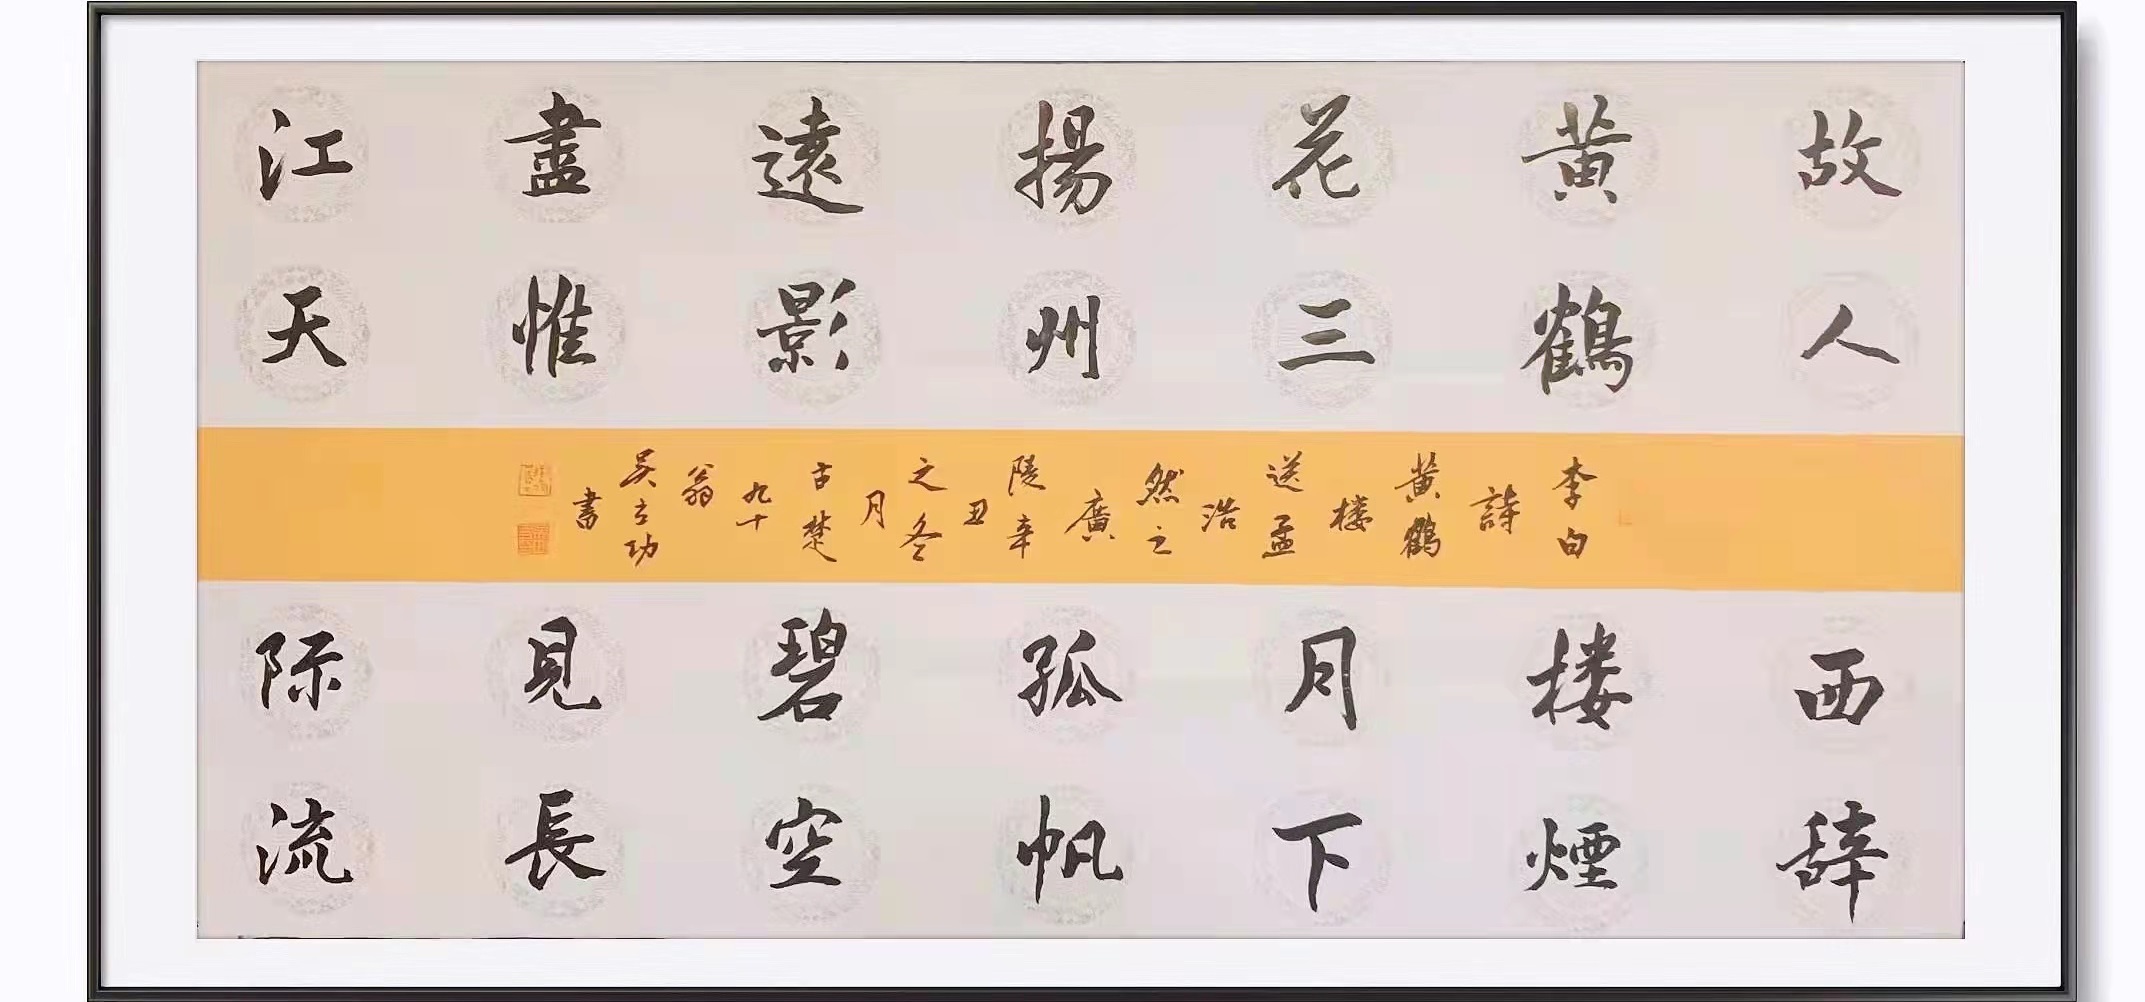 故人西辞
黄鶴楼煙
花三月下
揚州孤帆
遠影碧空
盡惟見長
江天际流
李白
詩
黄鶴
楼
送孟
浩
然之
廣
陵辛
丑
之冬
月
古楚
九十
翁
吴立功
書